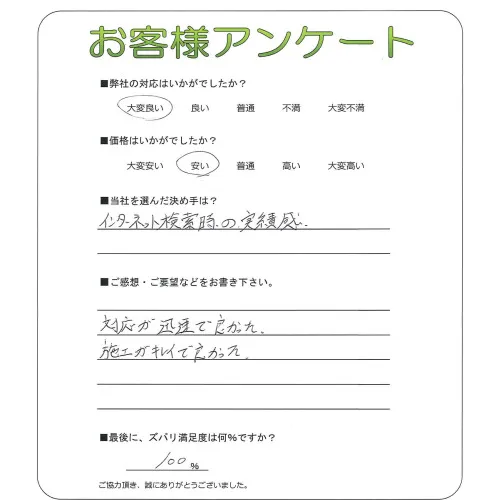 お客様アンケート
■弊社の対応はいかがでしたか？
大変良い 良い 普通 不満 大変不満
■価格はいかがでしたか？
大変安い 安い 普通 高い 大変高い
■当社を選んだ決め手は？
インターネット検索時の実績感.
■ご感想・ご要望などをお書き下さい。
対応が迅速で良かった.
施工がキレイで良かった.
■最後に、ズバリ満足度は何%ですか？
100 %
ご協力頂き、誠にありがとうございました。